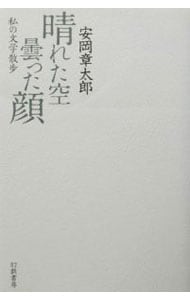 安岡章太郎
晴れた空
曇った顔
私の文学散歩
幻戯書房